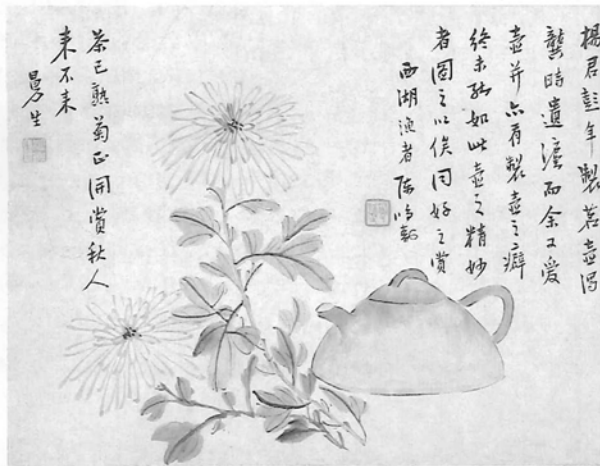 楊君彭年製茗壺得
龔時遺法而余又愛
壺并亦有製壺之癖
終未能如此壺之精妙
者圖之以俟同好之賞
西湖漁者陳鴻壽
茶已熟菊正開賞秋人
來不來
曼生